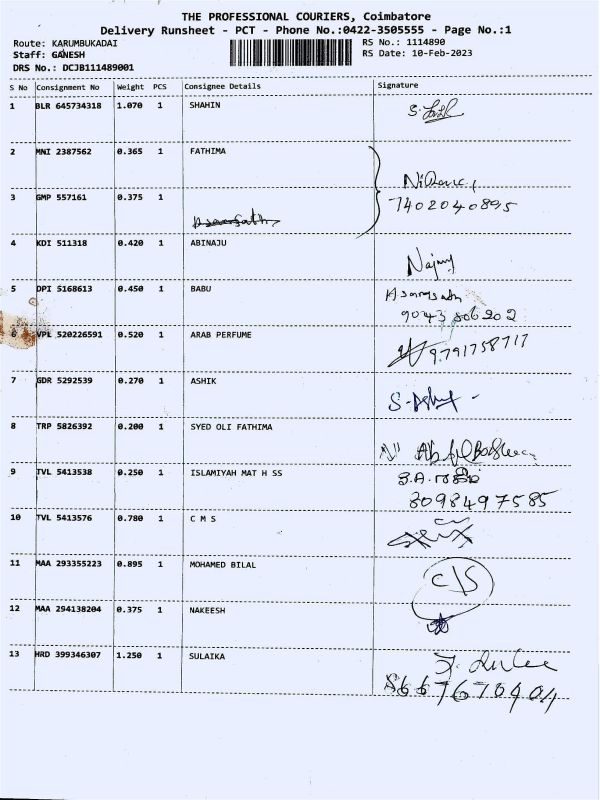 THE PROFESSIONAL COURIERS, Coimbatore
Delivery Runsheet - PCT - Phone No.:0422-3505555 - Page No.:1
Route: KARUMBUKADAI RS No.: 1114890
Staff: GANESH RS Date: 10-Feb-2023
DRS No.: DCJB111489001
S No Consignment No Weight PCS Consignee Details Signature
1 BLR 645734318 1.070 1 SHAHIN
2 MNI 2387562 0.365 1 FATHIMA
3 GMP 557161 0.375 1
7402040895
4 KDI 511318 0.420 1 ABINAJU
5 DPI 5168613 0.450 1 BABU
9043 806202
6 VPL 520226591 0.520 1 ARAB PERFUME
9791758717
7 GDR 5292539 0.270 1 ASHIK
8 TRP 5826392 0.200 1 SYED OLI FATHIMA
9 TVL 5413538 0.250 1 ISLAMIYAH MAT H SS
8098497585
10 TVL 5413576 0.780 1 C M S
11 MAA 293355223 0.895 1 MOHAMED BILAL
12 MAA 294138204 0.375 1 NAKEESH
13 HRD 399346307 1.250 1 SULAIKA